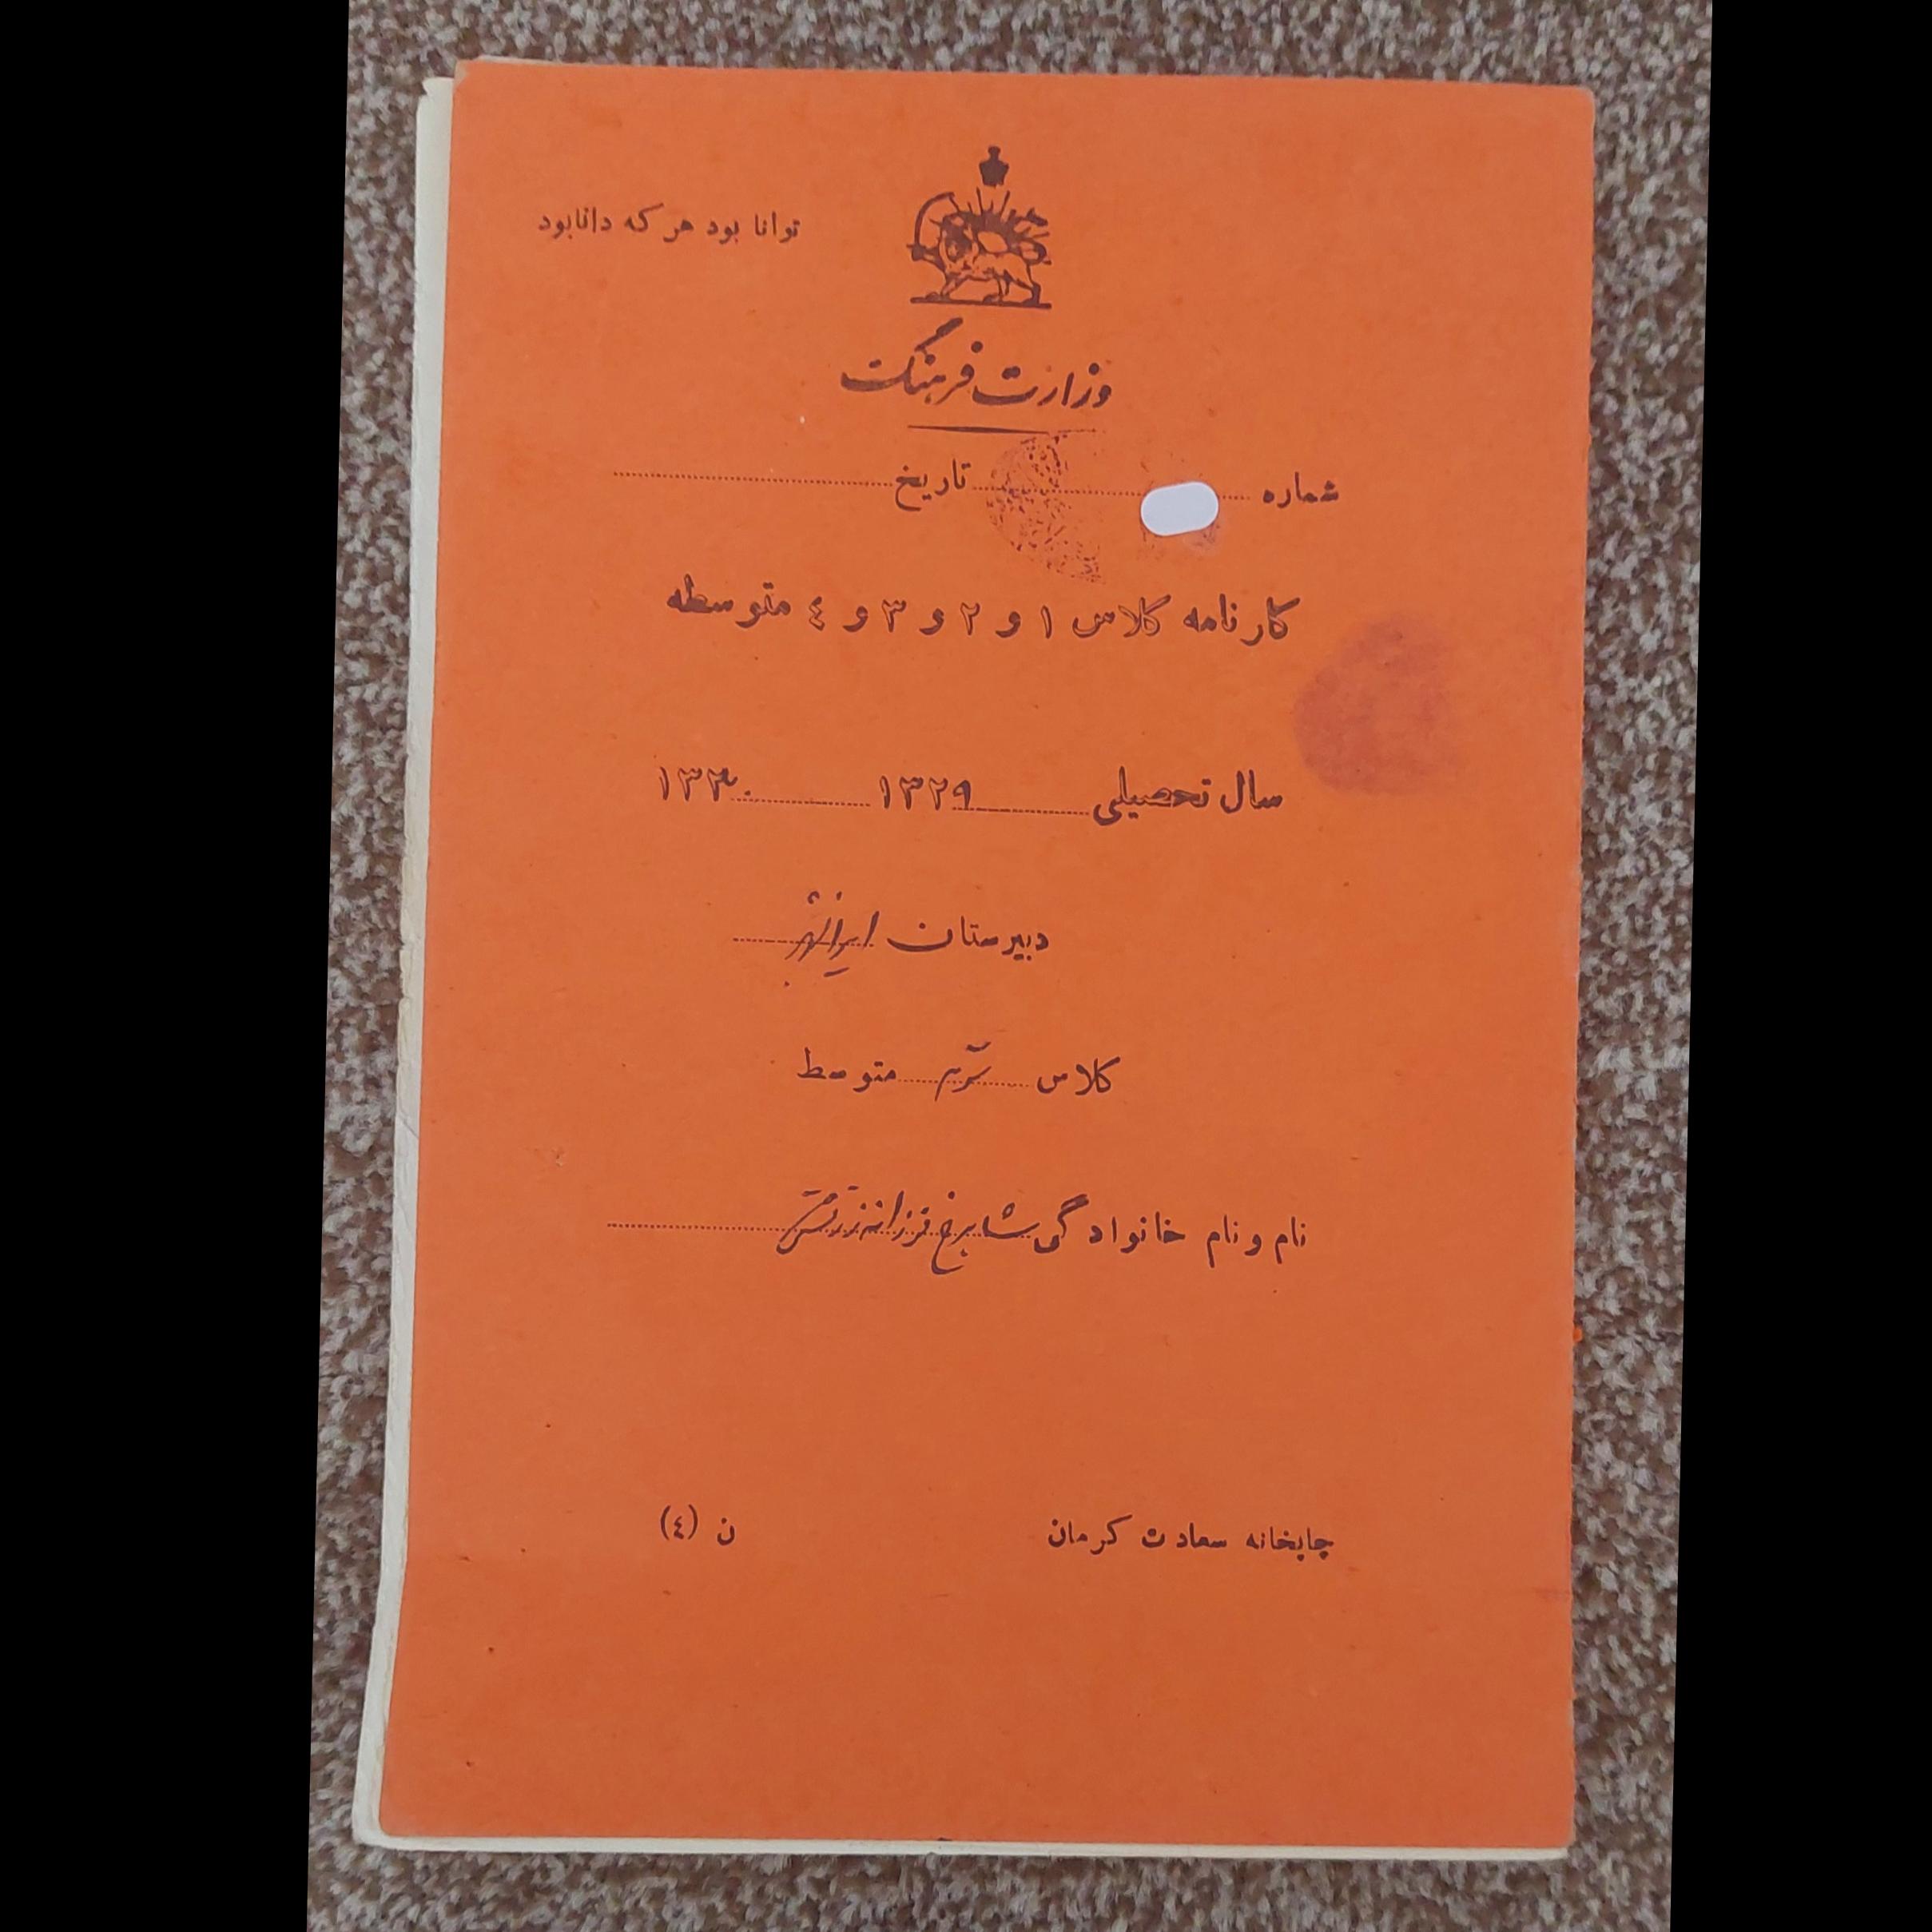 توانا بود هر که دانا بود
وزارت فرهنگ
شماره تاریخ
کارنامه کلاس ۱ و ۲ و ۳ و ٤ متوسطه
سال تحصیلی ۱۳۲۹ ۱۳۳۰
دبیرستان ایرانشهر
کلاس متوسط
نام و نام خانوادگی شاهرخ فرزانه
چاپخانه سعادت کرمان ن (٤)